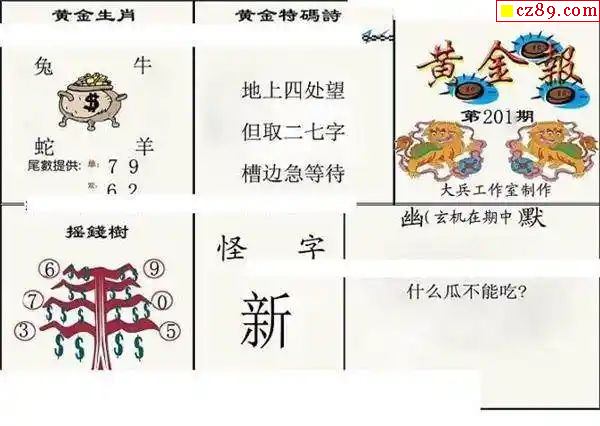 cz89.com
黄金生肖
兔 牛
蛇 羊
尾數提供: 单: 7 9
双: 6 2
黄金特碼詩
地上四处望
但取二七字
槽边急等待
黄金報
第201期
大兵工作室制作
摇錢樹
6 9
7 0
3 5
怪 字
新
幽(玄机在期中)默
什么瓜不能吃?